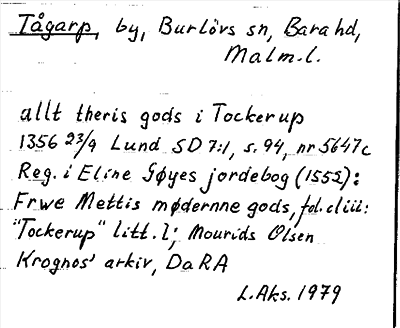 Tågarp, by, Burlövs sn, Bara hd,
Malm.l.
allt theris gods i Tockerup
1356 23/9 Lund SD 7:1, s. 94, nr 5647c
Reg. i Eline Gøyes jordebog (1552):
Frwe Mettis mødernne gods, fol. cliii:
"Tockerup" litt. l; Mourids Olsen
Krognos' arkiv, DaRA
L.Aks. 1979